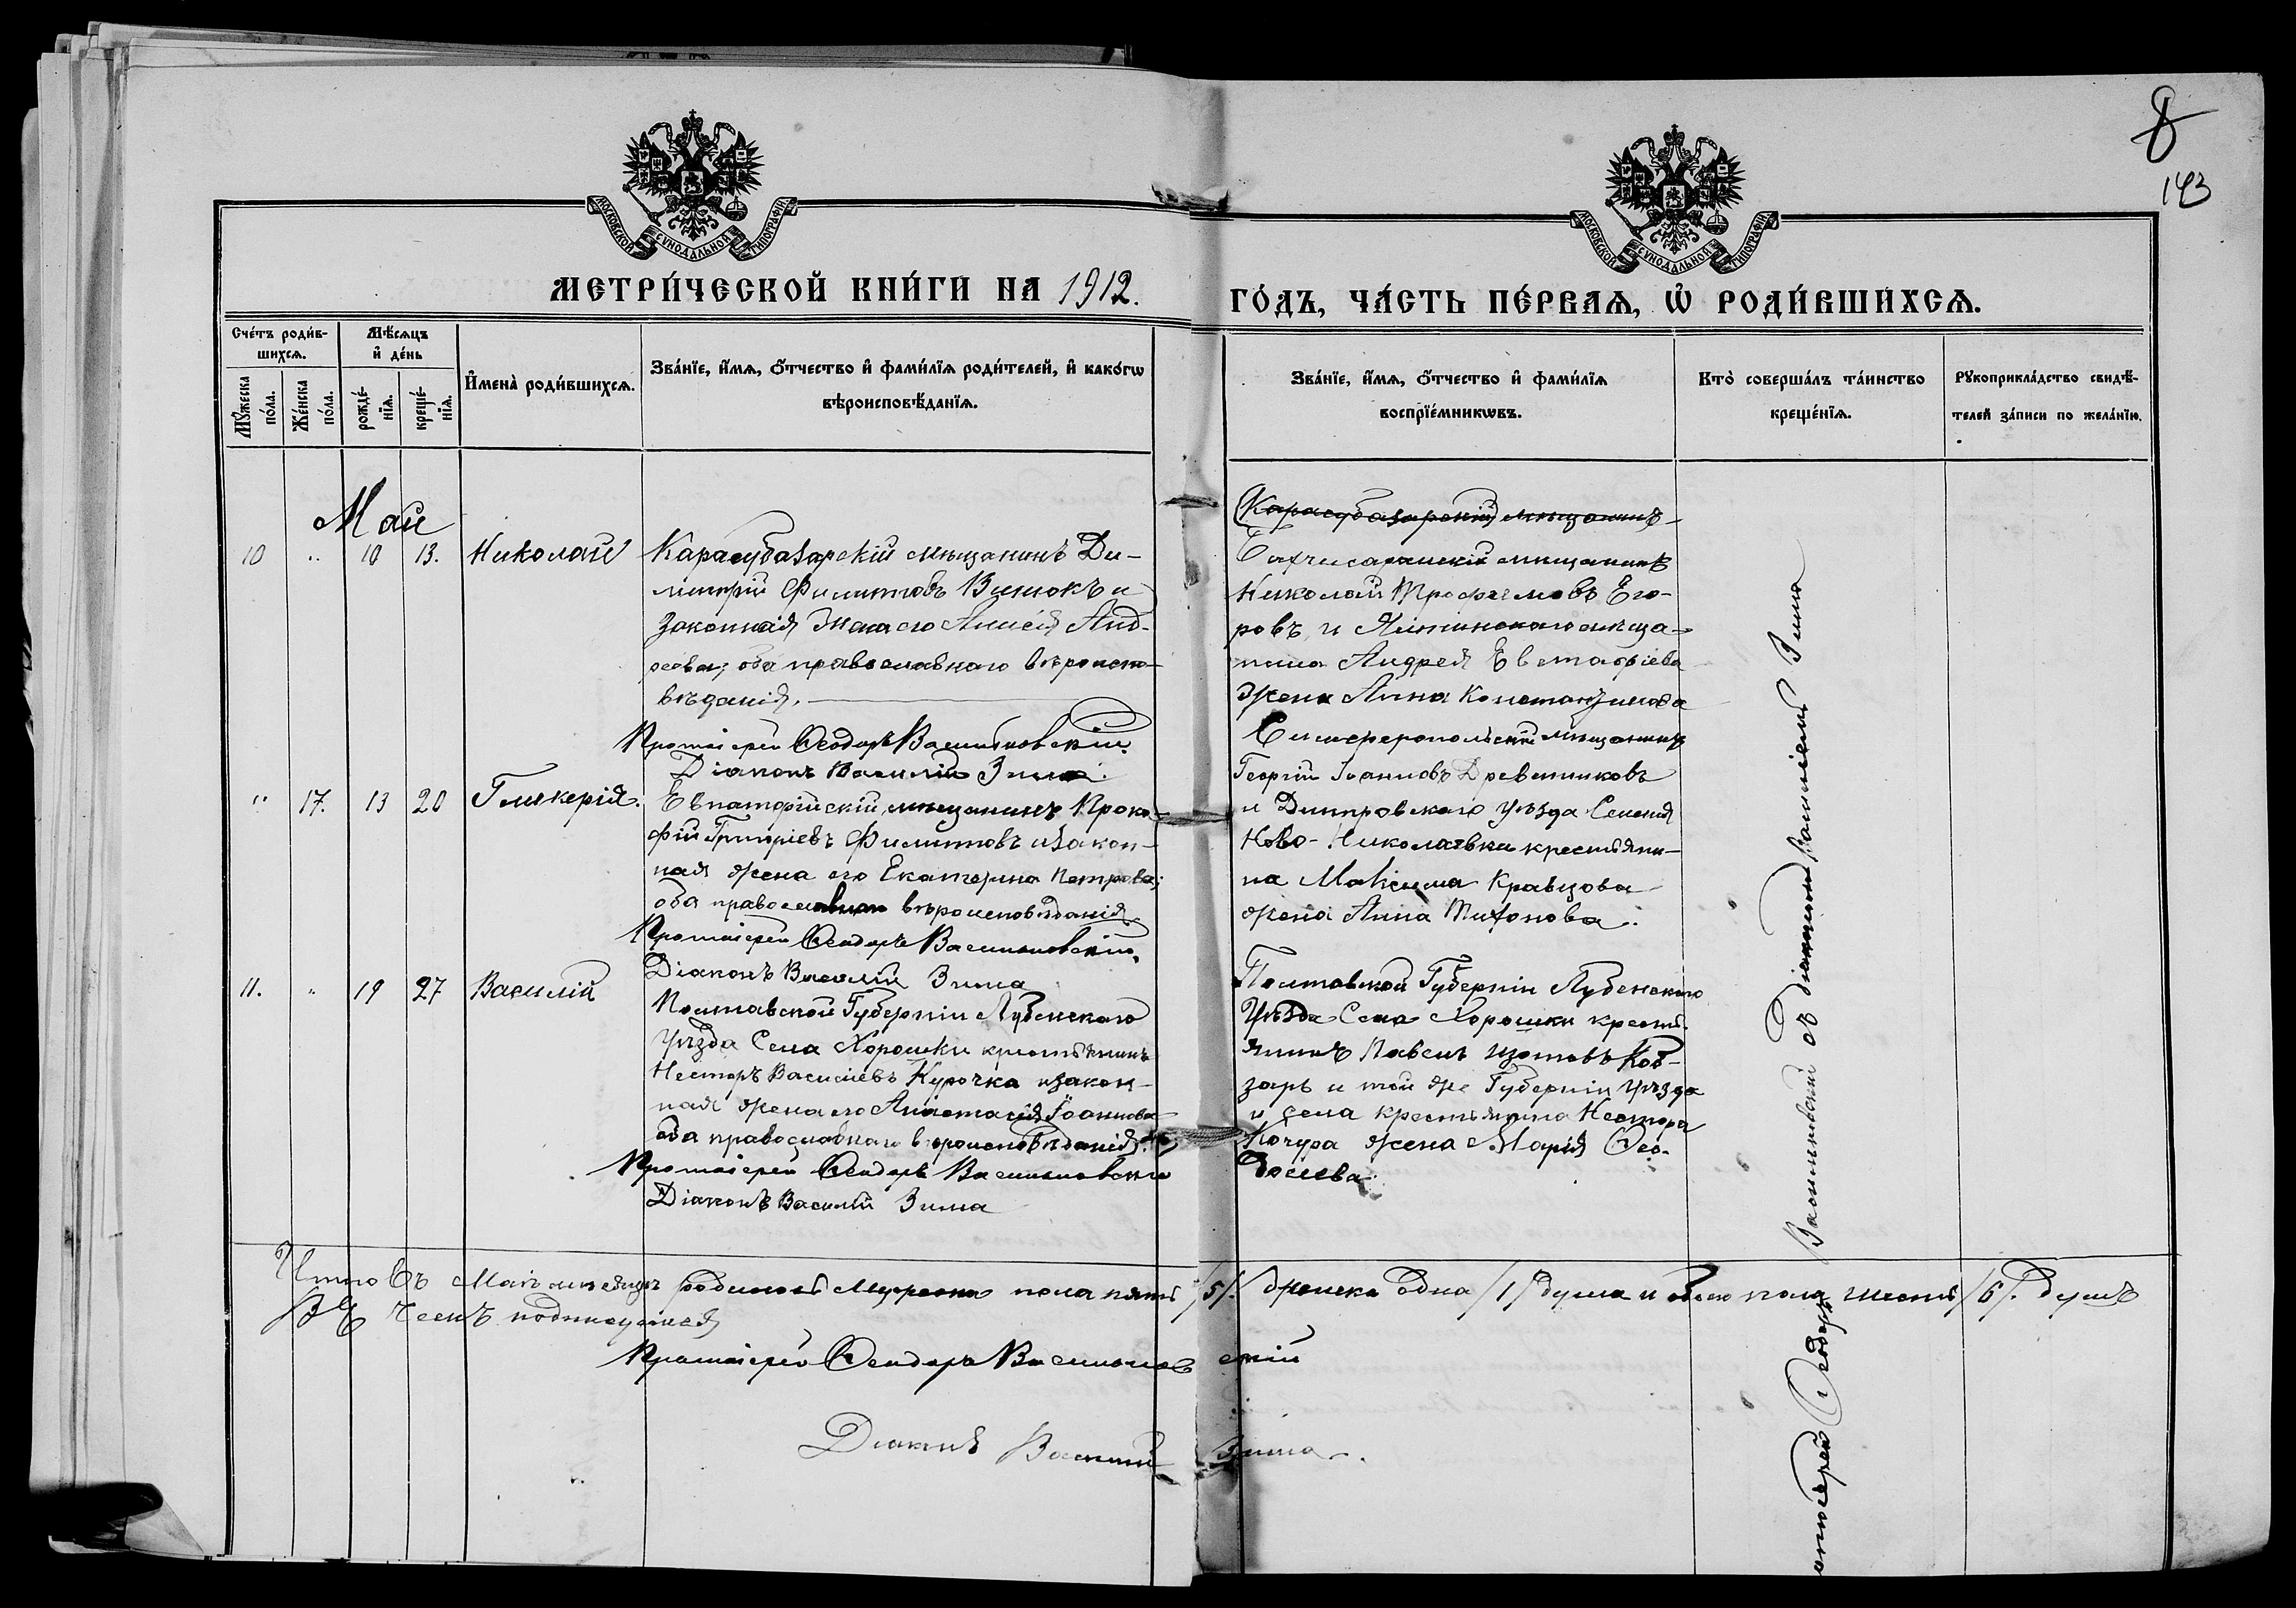 8
143
МОСКОВСКОЙ СѴНОДАЛЬНОЙ ТИПОГРАФІИ
МОСКОВСКОЙ СѴНОДАЛЬНОЙ ТИПОГРАФІИ
МЕТРИ́ЧЕСКОЙ КНИ́ГИ НА 1912.
ГО́ДЪ, ЧА́СТЬ ПЕ́РВАЯ, Ѡ҆ РОДИ́ВШИХСЯ.
Сче́тъ роди́в-
шихся.
Мѣ́сяцъ
и҆ де́нь
Мꙋ́жеска
по́ла.
Же́нска
по́ла.
рожде́-
нїя.
креще́-
нїя.
И҆мена̀ роди́вшихся.
Зва́нїе, и҆́мя, ѻ҆́тчество и҆ фами́лїя роди́телей, и҆ како́гѡ
вѣроисповѣ́данїя.
Зва́нїе, и҆́мя, ѻ҆́тчество и҆ фами́лїя
воспрїе́мникѡвъ.
Кто̀ соверша́лъ та́инство
креще́нїя.
Рꙋкоприкла́дство свидѣ́-
телей за́писи по жела́нїю.
Май
10 " 10 13. Николай
Карасубазарскій мѣщанинъ Ди-
митрій Филиповъ Витокъ и
законная жена его Анисія Анд-
реева; оба православнаго вѣроиспо-
вѣданія.
Протоіерей Ѳеодоръ Васильковскій.
Діаконъ Василій Зима.
Карасубазарскій мѣщанинъ
Бахчисарайскій мѣщанинъ
Николай Трофимовъ Его-
ровъ и Ялтинскаго мѣща-
нина Андрея Евстафіева
жена Анна Константинова
" 17. 13 20 Гликерія.
Евпаторійскій мѣщанинъ Проко-
фій Григоріевъ Филиповъ и закон-
ная жена его Екатерина Петрова;
оба православнаго вѣроисповѣданія.
Протоіерей Ѳеодоръ Васильковскій.
Діаконъ Василій Зима
Симферопольскій мѣщанинъ
Георгій Іоанновъ Древетняковъ
и Днѣпровскаго уѣзда Селенія
Ново-Николаевки крестьяни-
на Максима Кравцова
жена Анна Тихонова.
11. " 19 27 Василій
Полтавской Губерніи Лубенскаго
Уѣзда Села Хорошки крестьянинъ
Несторъ Василіевъ Курочка и закон-
ная жена его Анастасія Іоаннова
оба православнаго вѣроисповѣданія.
Протоіерей Ѳеодоръ Васильковскій
Діаконъ Василій Зима
Полтавской Губерніи Лубенскаго
Уѣзда Села Хорошки кресть-
янинъ Павелъ Изотовъ Коб-
зарь и той же Губерніи уѣзда
и села крестьянина Нестора
Кочура жена Марія Ѳео-
досіева.
Протоіерей Ѳеодоръ Васильковскій съ діакономъ Василіемъ Зима
Итого въ Маѣ мѣсяцѣ родилось Мужеска пола пять /5/. женска одна /1/ душа и обоего пола шесть /6/. душъ
Въ чемъ подписуемся
Протоіерей Ѳеодоръ Васильковскій
Діаконъ Василій Зима.